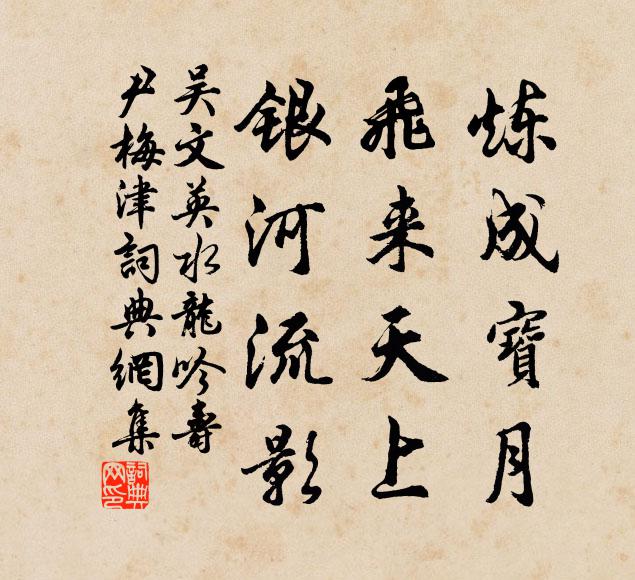 炼成寶月
飛来天上
銀河流影
吴文英水龍吟壽
尹梅津詞典網集
詞典网印